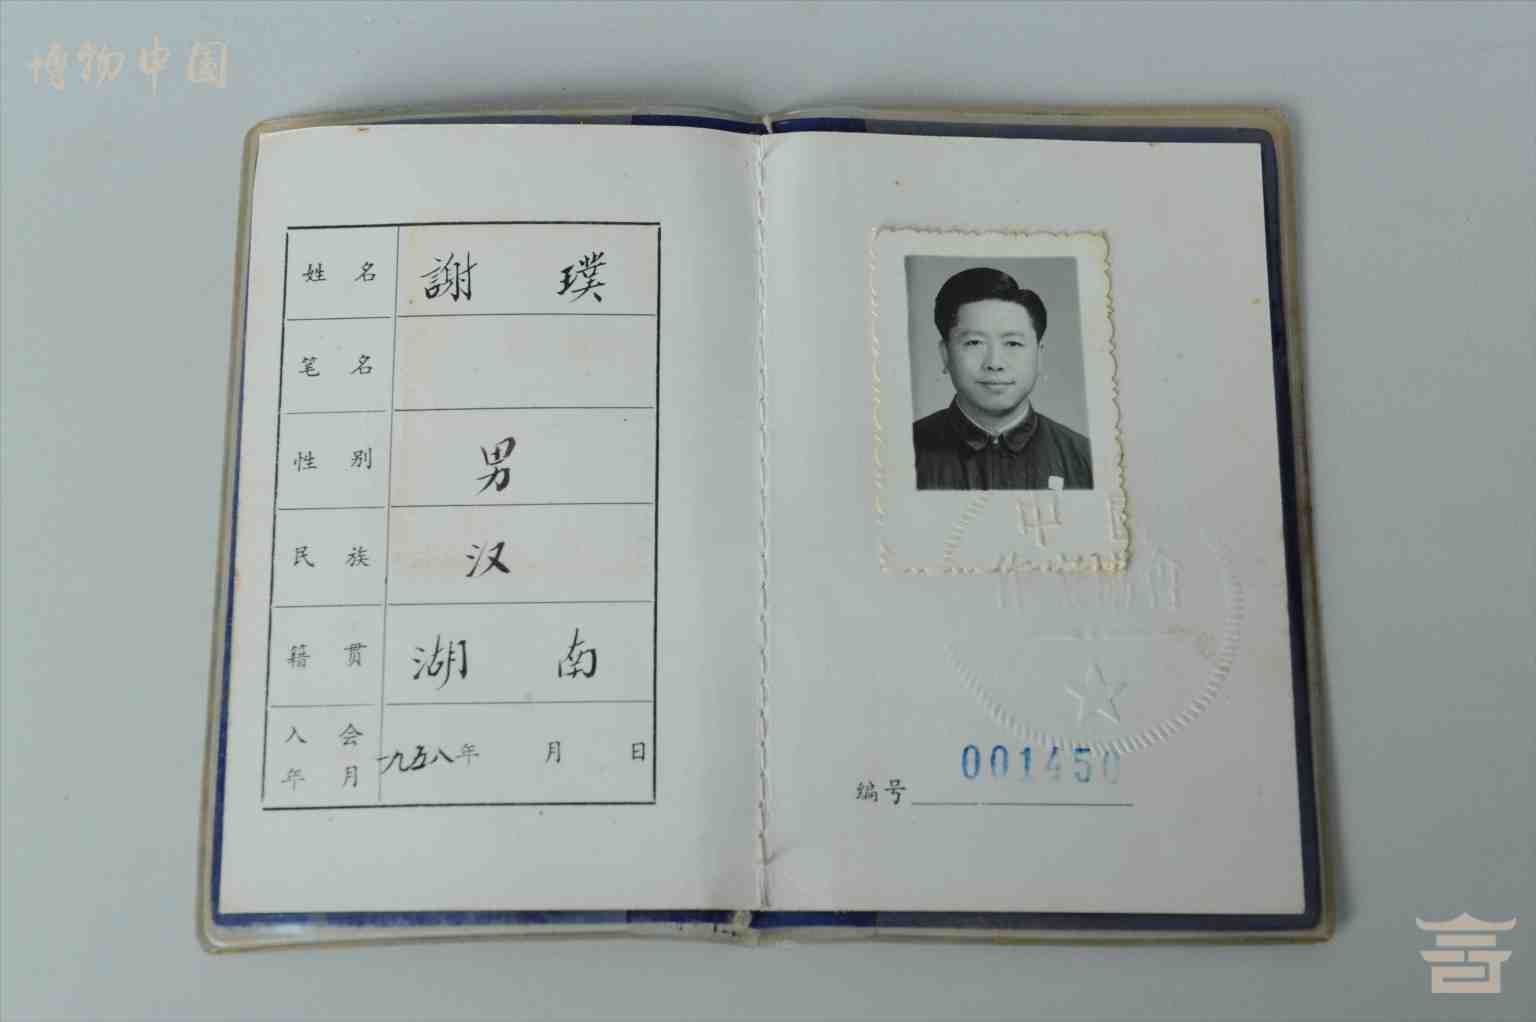 博物中国
姓名 謝璞
笔名
性别 男
民族 汉
籍贯 湖南
入会年月 一九五八年 月 日
中国
作家协会
编号 001450